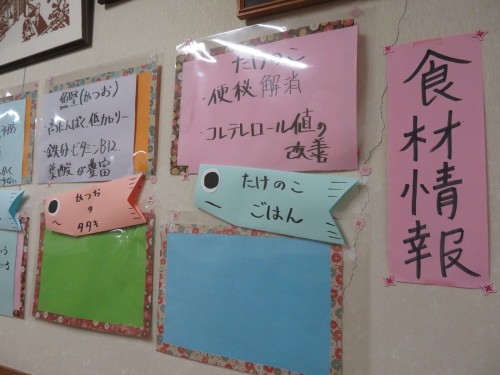 食材情報
たけのこ
・便秘解消
・コレステロール値の
改善
たけのこ
ごはん
鰹(かつお)
・高たんぱく、低カロリー
・鉄分・ビタミンB12、
葉酸が豊富
かつお
の
タタキ